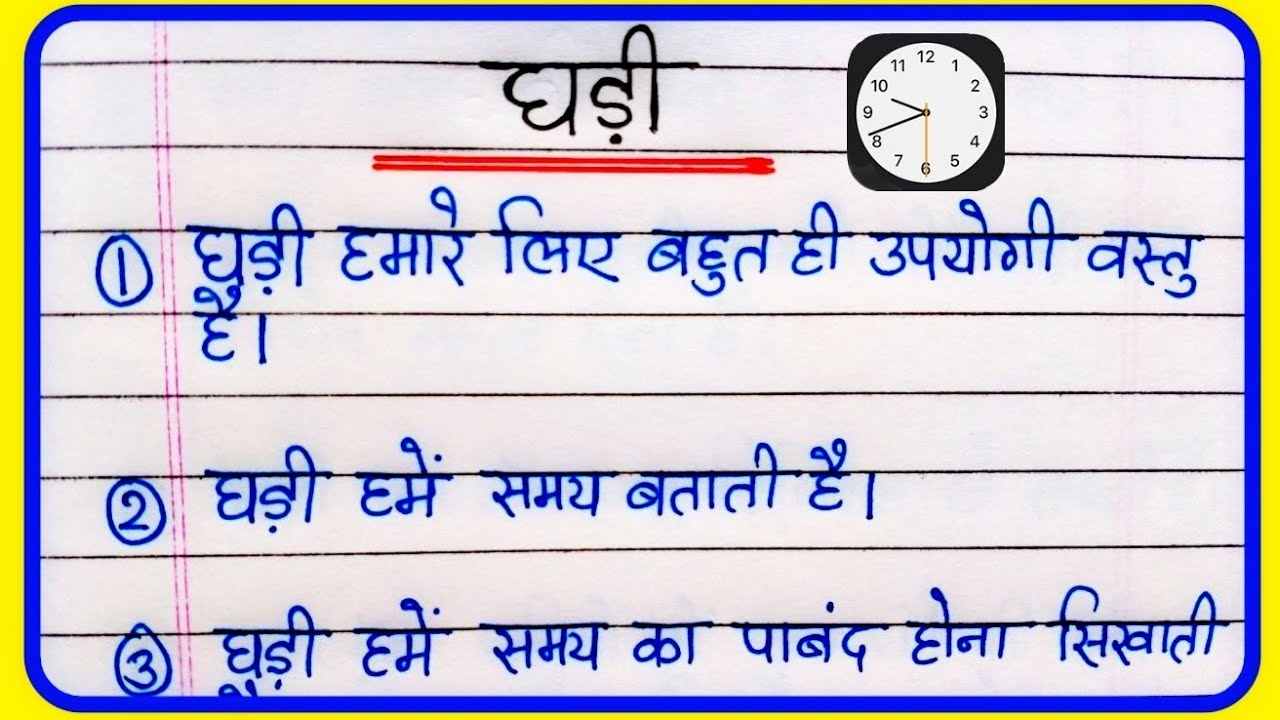 घड़ी
12
11 1
10 2
9 3
8 4
7 5
6
① घड़ी हमारे लिए बहुत ही उपयोगी वस्तु
है।
② घड़ी हमें समय बताती है।
③ घड़ी हमें समय का पाबंद होना सिखाती